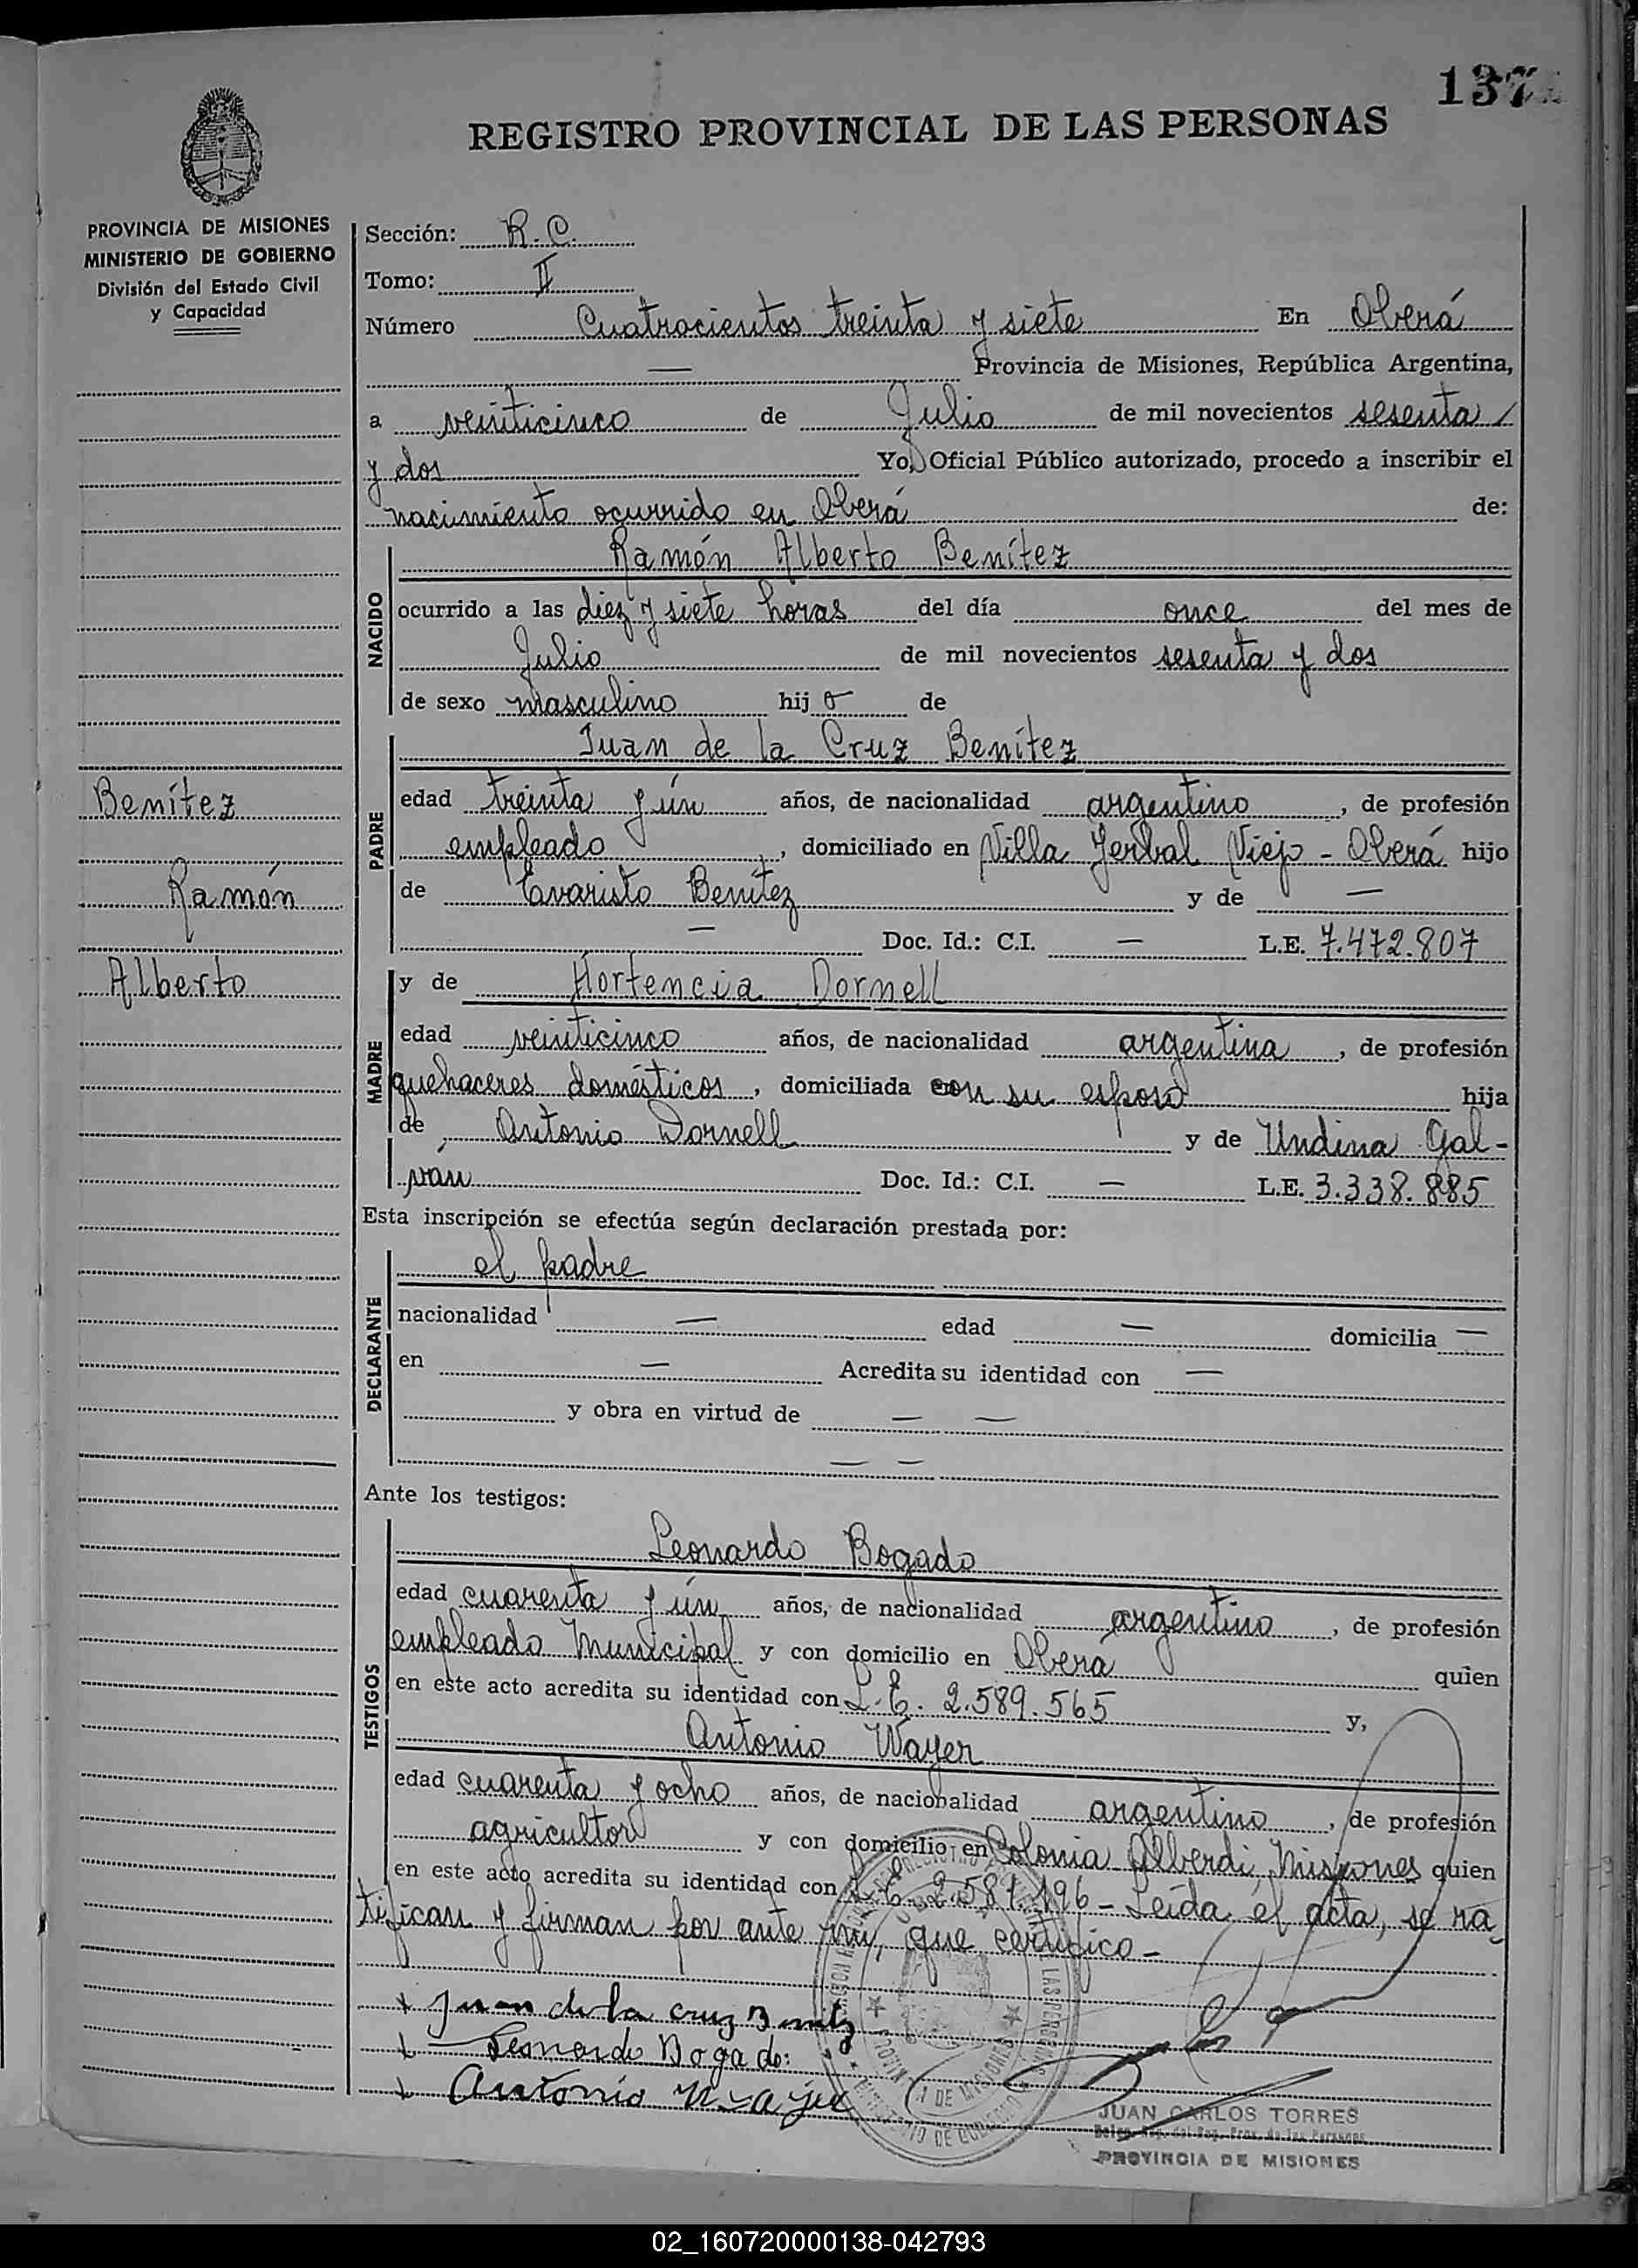 137
REGISTRO PROVINCIAL DE LAS PERSONAS
PROVINCIA DE MISIONES
MINISTERIO DE GOBIERNO
División del Estado Civil
y Capacidad
Benítez
Ramón
Alberto
Sección: R.C.
Tomo: II
Número Cuatrocientos treinta y siete En Oberá
— Provincia de Misiones, República Argentina,
a veinticinco de Julio de mil novecientos sesenta /
y dos Yo, Oficial Público autorizado, procedo a inscribir el
nacimiento ocurrido en Oberá de:
NACIDO
Ramón Alberto Benítez
ocurrido a las diez y siete horas del día once del mes de
Julio de mil novecientos sesenta y dos
de sexo masculino hij o de
PADRE
Juan de la Cruz Benítez
edad treinta y ún años, de nacionalidad argentino, de profesión
empleado, domiciliado en Villa Yerbal Viejo - Oberá hijo
de Evaristo Benítez y de —
— Doc. Id.: C.I. — L.E. 7.472.807
MADRE
y de Hortencia Dornell
edad veinticinco años, de nacionalidad argentina, de profesión
quehaceres domésticos, domiciliada con su esposo hija
de Antonio Dornell y de Undina Gal-
ván Doc. Id.: C.I. — L.E. 3.338.885
Esta inscripción se efectúa según declaración prestada por:
DECLARANTE
el padre
nacionalidad — edad — domicilia —
en — Acredita su identidad con —
y obra en virtud de — —
— —
Ante los testigos:
TESTIGOS
Leonardo Bogado
edad cuarenta y ún años, de nacionalidad argentino, de profesión
empleado Municipal y con domicilio en Oberá quien
en este acto acredita su identidad con L.E. 2.589.565 y,
Antonio Wayer
edad cuarenta y ocho años, de nacionalidad argentino, de profesión
agricultor y con domicilio en Colonia Alberdi, Misiones quien
en este acto acredita su identidad con L.E. 2.581.196 - Leída el acta, se ra-
tifican y firman por ante mí, que certifico -
Juan de la cruz Benitez
Leonardo Bogado:
Antonio Wayer
JUAN CARLOS TORRES
PROVINCIA DE MISIONES
02_160720000138-042793